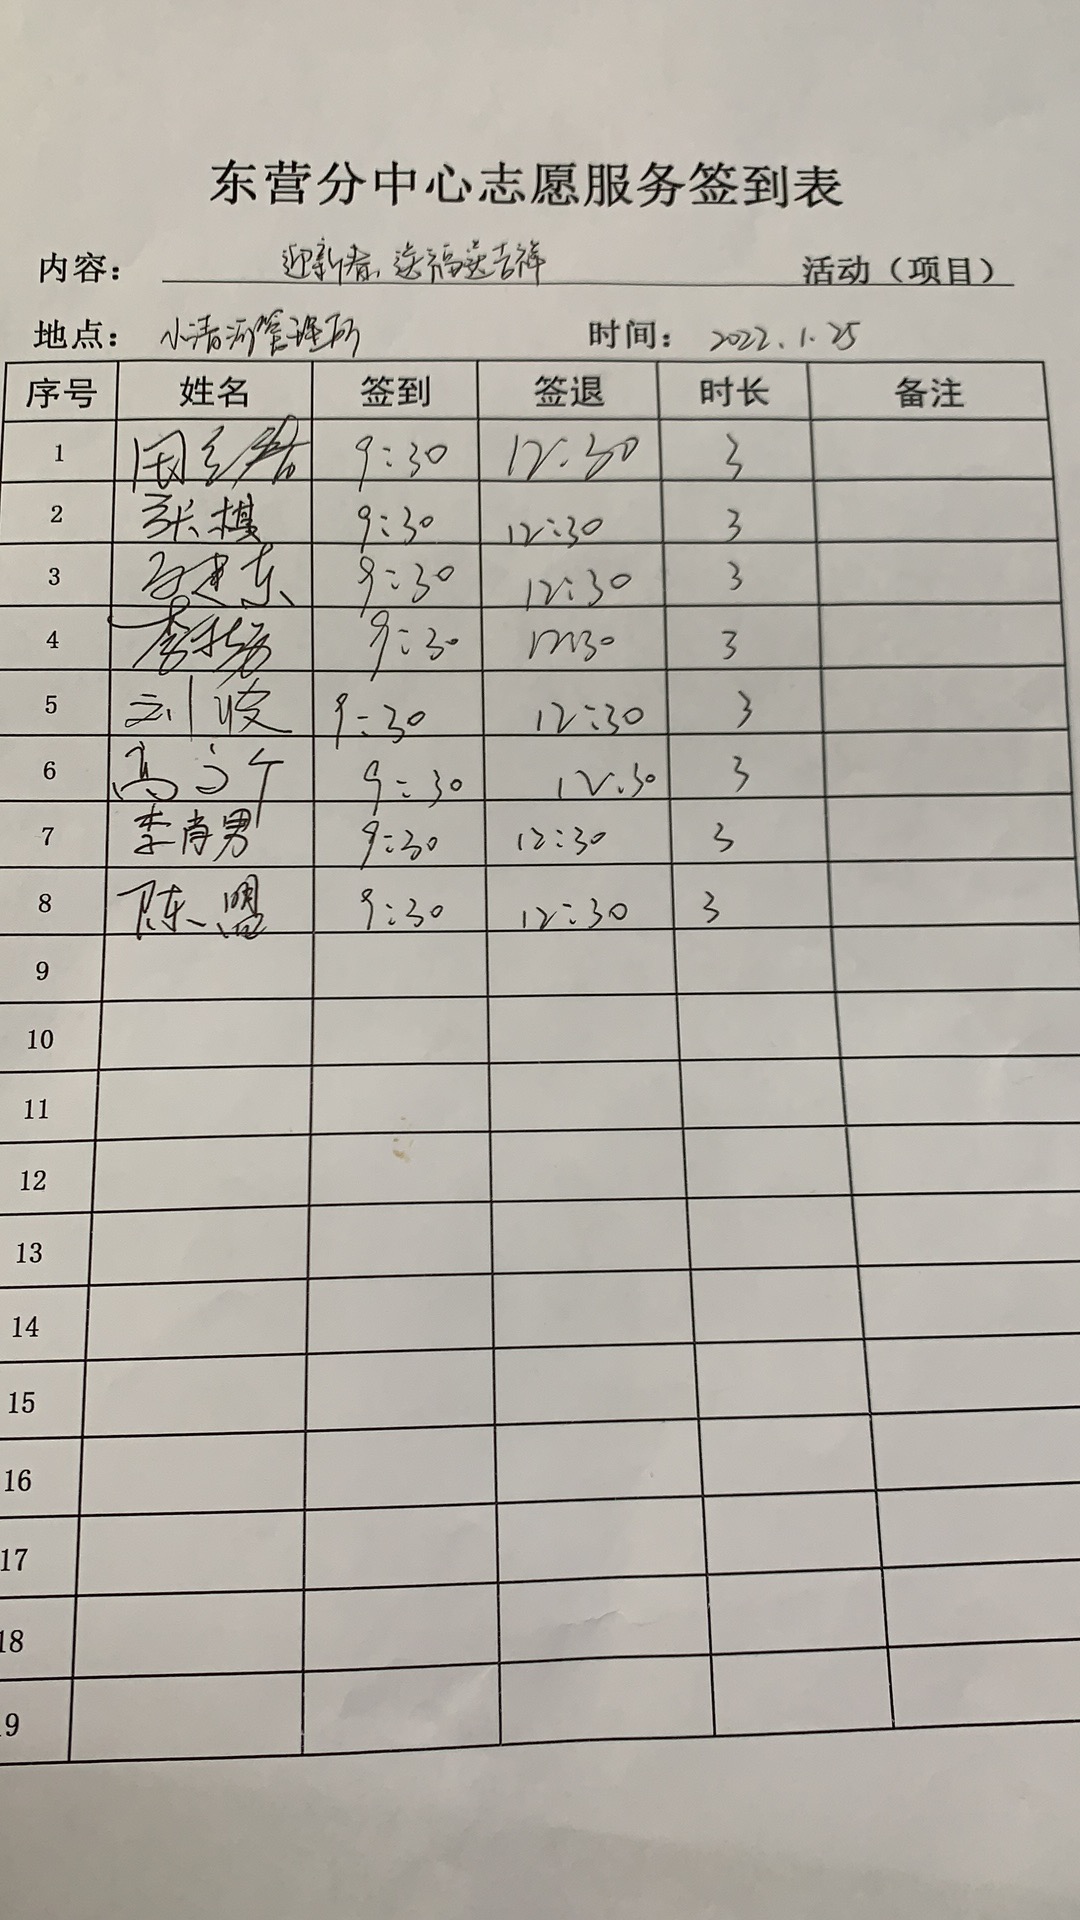 东营分中心志愿服务签到表
内容： 迎新春、送福送吉祥 活动（项目）
地点： 小清河管理所 时间： 2022.1.25
序号 姓名 签到 签退 时长 备注
1 9:30 12:30 3
2 张棋 9:30 12:30 3
3 建东 9:30 12:30 3
4 李 9:30 12:30 3
5 刘波 9:30 12:30 3
6 高 9:30 12:30 3
7 李肖男 9:30 12:30 3
8 陈盟 9:30 12:30 3
9
10
11
12
13
14
15
16
17
18
19